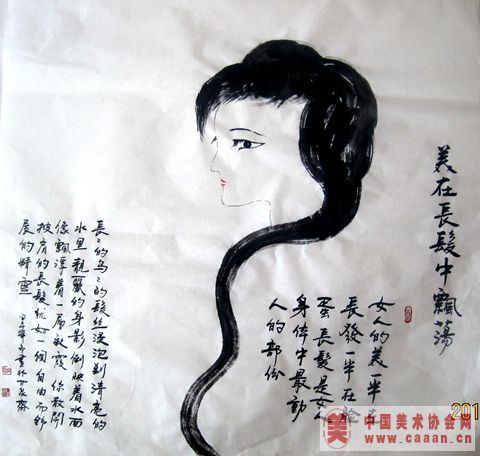 美在長髮中飄蕩
女人的美一半在
長發一半在脸
蛋長髮是女人
身体中最動
人的部份
長々的烏々的髮丝浸泡到清亮的
水里靓麗的身影倒映着水面
像飄浮着一層彩霞 你散開
披肩的長髮犹如一個自由而舒
展的
201
美 中国美术协会网
www.caaan.cn